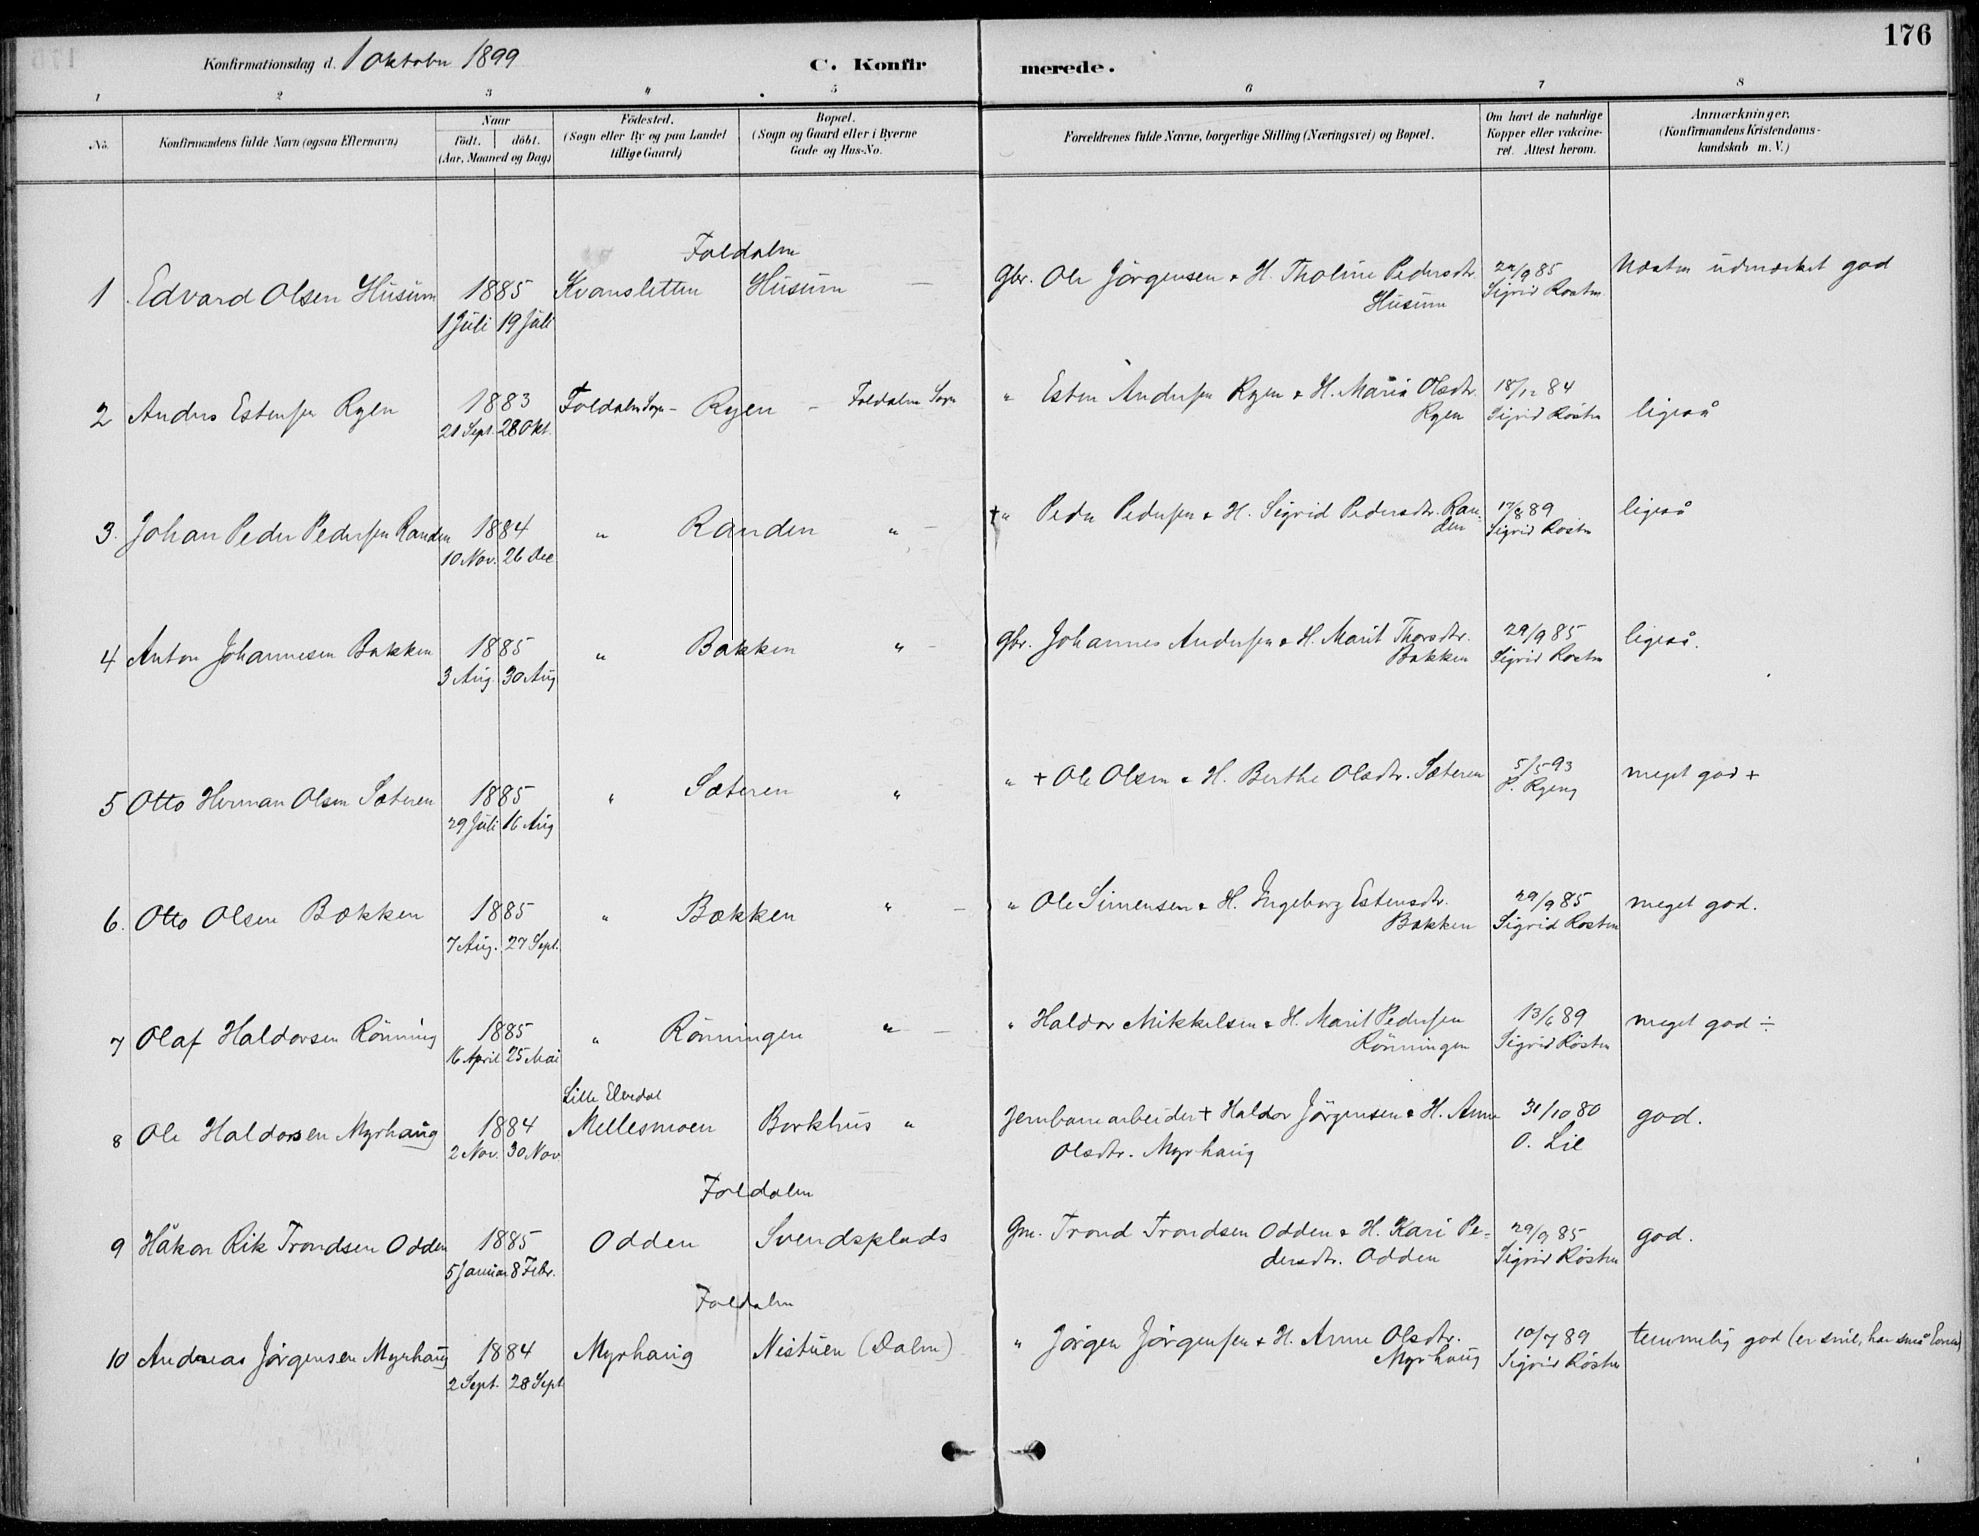 176
Konfirmationsdag d. 1 Oktober 1899
C. Konfirmerede.
1 2 3 4 5 6 7 8
No.
Konfirmandens fulde Navn (ogsaa Efternavn)
Naar
født. døbt.
(Aar, Maaned og Dag)
Fødested.
(Sogn eller By og paa Landet
tillige Gaard)
Bopæl.
(Sogn og Gaard eller i Byerne
Gade og Hus-No.
Forældrenes fulde Navne, borgerlige Stilling (Næringsvei) og Bopæl.
Om havt de naturlige
Kopper eller vakcine-
ret. Attest herom.
Anmærkninger.
(Konfirmandens Kristendoms-
kundskab m. V.)
Foldalen
1. Edvard Olsen Husum 1885 Kvansletten Husum — Gbr. Ole Jörgensen & H. Tholine Pedersdtr. 29/9 85 Næsten udmærket god
1 Juli 19 Juli Husum Sigrid Rosten
2 Anders Estensen Ryen 1883 Foldalen Sogn – Ryen – Foldalen Sogn " Esten Andersen Ryen & H. Maria Olsdtr. 18/12 84 ligeså
21 Sept. 28 Okt. Ryen Sigrid Rösten
3. Johan Peder Pedersen Randen 1884 " Randen " – † " Peder Pedersen & H. Sigrid Pedersdtr. Ran- 17/8 89 ligeså
10 Nov. 26 Dec den Sigrid Rosten
4 Anton Johannesen Bakken 1885 " Bakken " – Gbr. Johannes Andersen & H. Marit Thorsdtr. 29/9 85 ligeså.
3 Aug. 30 Aug Bakken Sigrid Rosten
5 Otto Herman Olsen Sæteren 1885 " Sæteren " " † Ole Olsen & H. Berthe Olsdtr. Sæteren 5/5 93 meget god +
29 Juli 16 Aug P. Ryeng
6. Otto Olsen Bækken 1885 " Bækken " – " Ole Simensen & H. Ingeborg Estensdtr. 29/9 85 meget god.
7 Aug. 27 Sept. Bækken Sigrid Rosten
7 Olaf Haldorsen Rönning 1885 " Rönningen " – " Haldor Mikkelsen & H. Marit Pedersen 13/6 89 meget god ÷
16 April 25 Mai Rönningen Sigrid Rösten
Lille Elvedal
8 Ole Haldorsen Myrhaug 1884 Mellesmoen Borkhus " Jernbanearbeider † Haldor Jörgensen & H. Anne 31/10 80 god.
2 Nov. 30 Nov. Olsdtr. Myrhaug O. Lie
Foldalen
9 Håkon Rik Trondsen Odden 1885 Odden Svendsplads Gm. Trond Trondsen Odden & H. Kari Pe- 29/9 85 god.
5 Januar 8 Febr. dersdtr. Odden Sigrid Rösten
Foldalen
10 Andreas Jörgensen Myrhaug 1884 Myrhaug Nistuen (Dalen) " Jörgen Jörgensen & H. Anne Olsdtr. 10/7 89 temmelig god (er snil, har små Evner)
2 Sept. 28 Sept Myrhaug Sigrid Rösten